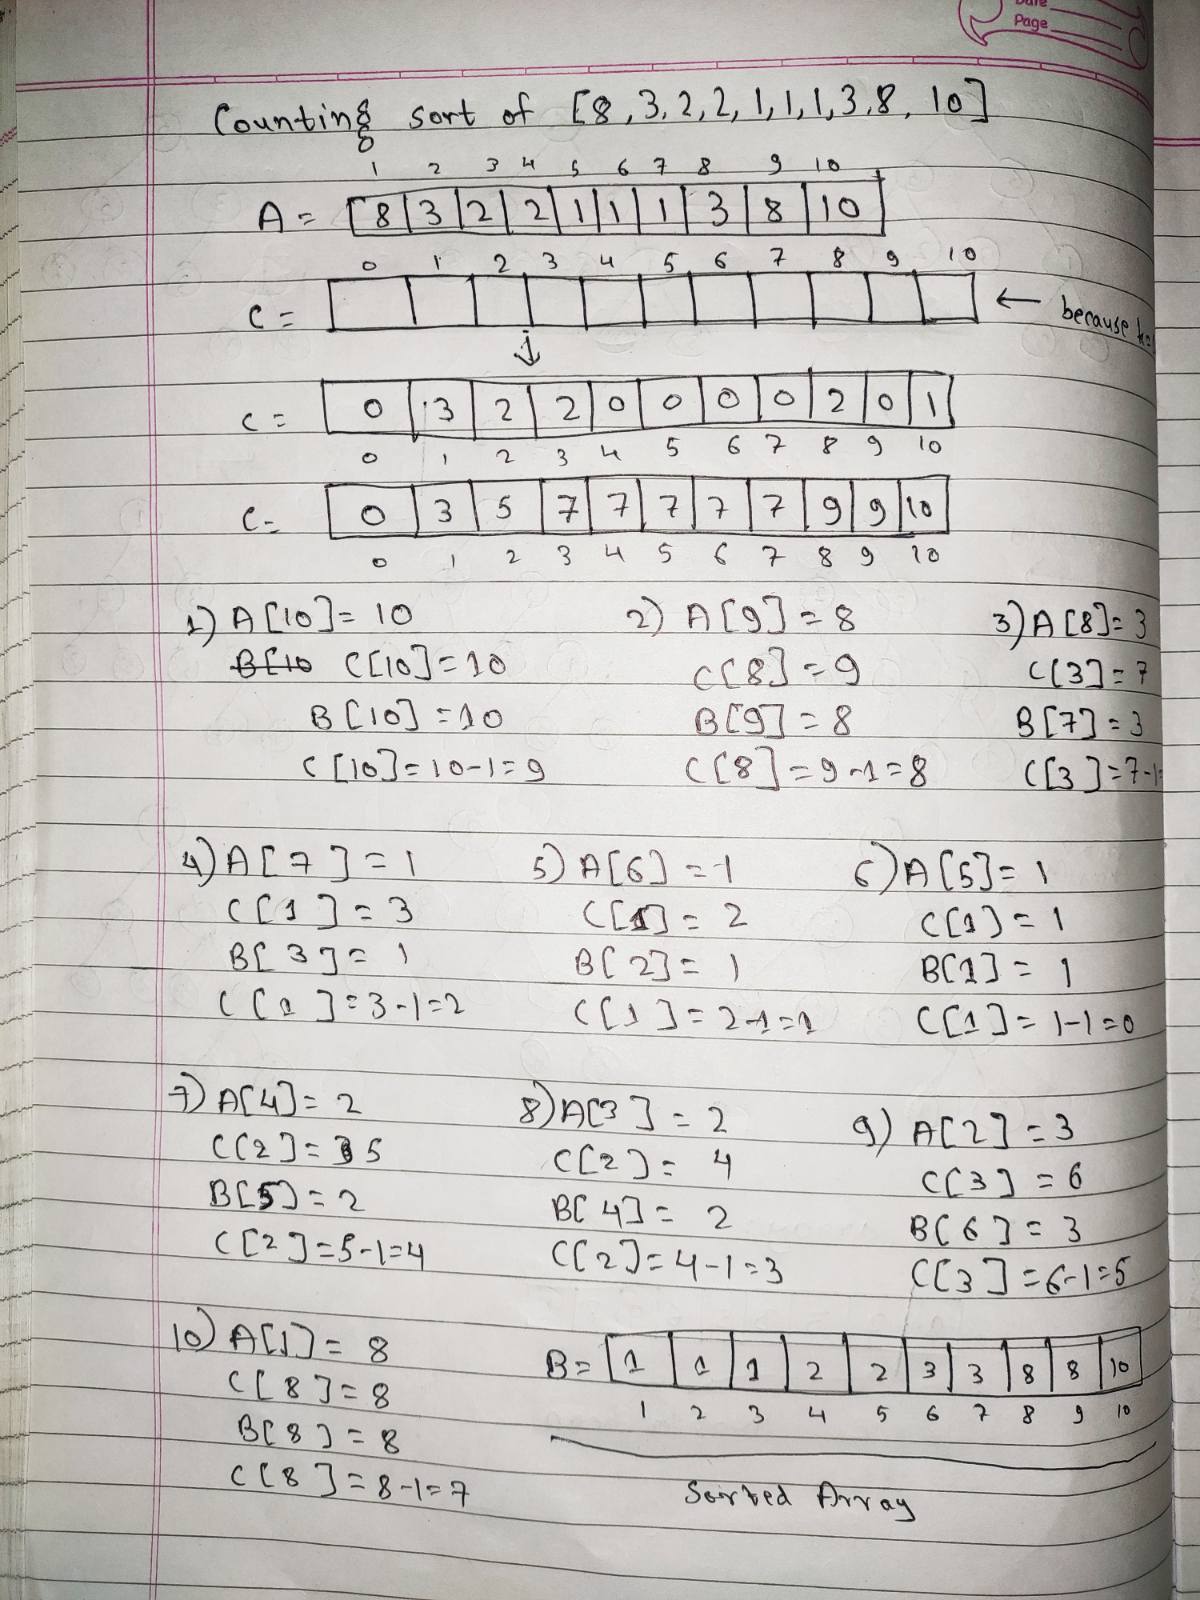 Date
Page
Counting sort of [8,3,2,2,1,1,1,3,8,10]
1 2 3 4 5 6 7 8 9 10
A = [8|3|2|2|1|1|1|3|8|10
0 1 2 3 4 5 6 7 8 9 10
C = ← because k=
↓
C = 0 3 2 2 0 0 0 0 2 0 1
0 1 2 3 4 5 6 7 8 9 10
C = 0 3 5 7 7 7 7 7 9 9 10
0 1 2 3 4 5 6 7 8 9 10
1) A[10] = 10
B[10 C[10] = 10
B[10] = 10
C[10] = 10-1 = 9
2) A[9] = 8
C[8] = 9
B[9] = 8
C[8] = 9-1 = 8
3) A[8] = 3
C[3] = 7
B[7] = 3
C[3] = 7-1=
4) A[7] = 1
C[1] = 3
B[3] = 1
C[1] = 3-1=2
5) A[6] = 1
C[1] = 2
B[2] = 1
C[1] = 2-1=1
6) A[5] = 1
C[1] = 1
B[1] = 1
C[1] = 1-1=0
7) A[4] = 2
C[2] = 5
B[5] = 2
C[2] = 5-1=4
8) A[3] = 2
C[2] = 4
B[4] = 2
C[2] = 4-1=3
9) A[2] = 3
C[3] = 6
B[6] = 3
C[3] = 6-1=5
10) A[1] = 8
C[8] = 8
B[8] = 8
C[8] = 8-1=7
B = 1 1 1 2 2 3 3 8 8 10
1 2 3 4 5 6 7 8 9 10
Sorted Array